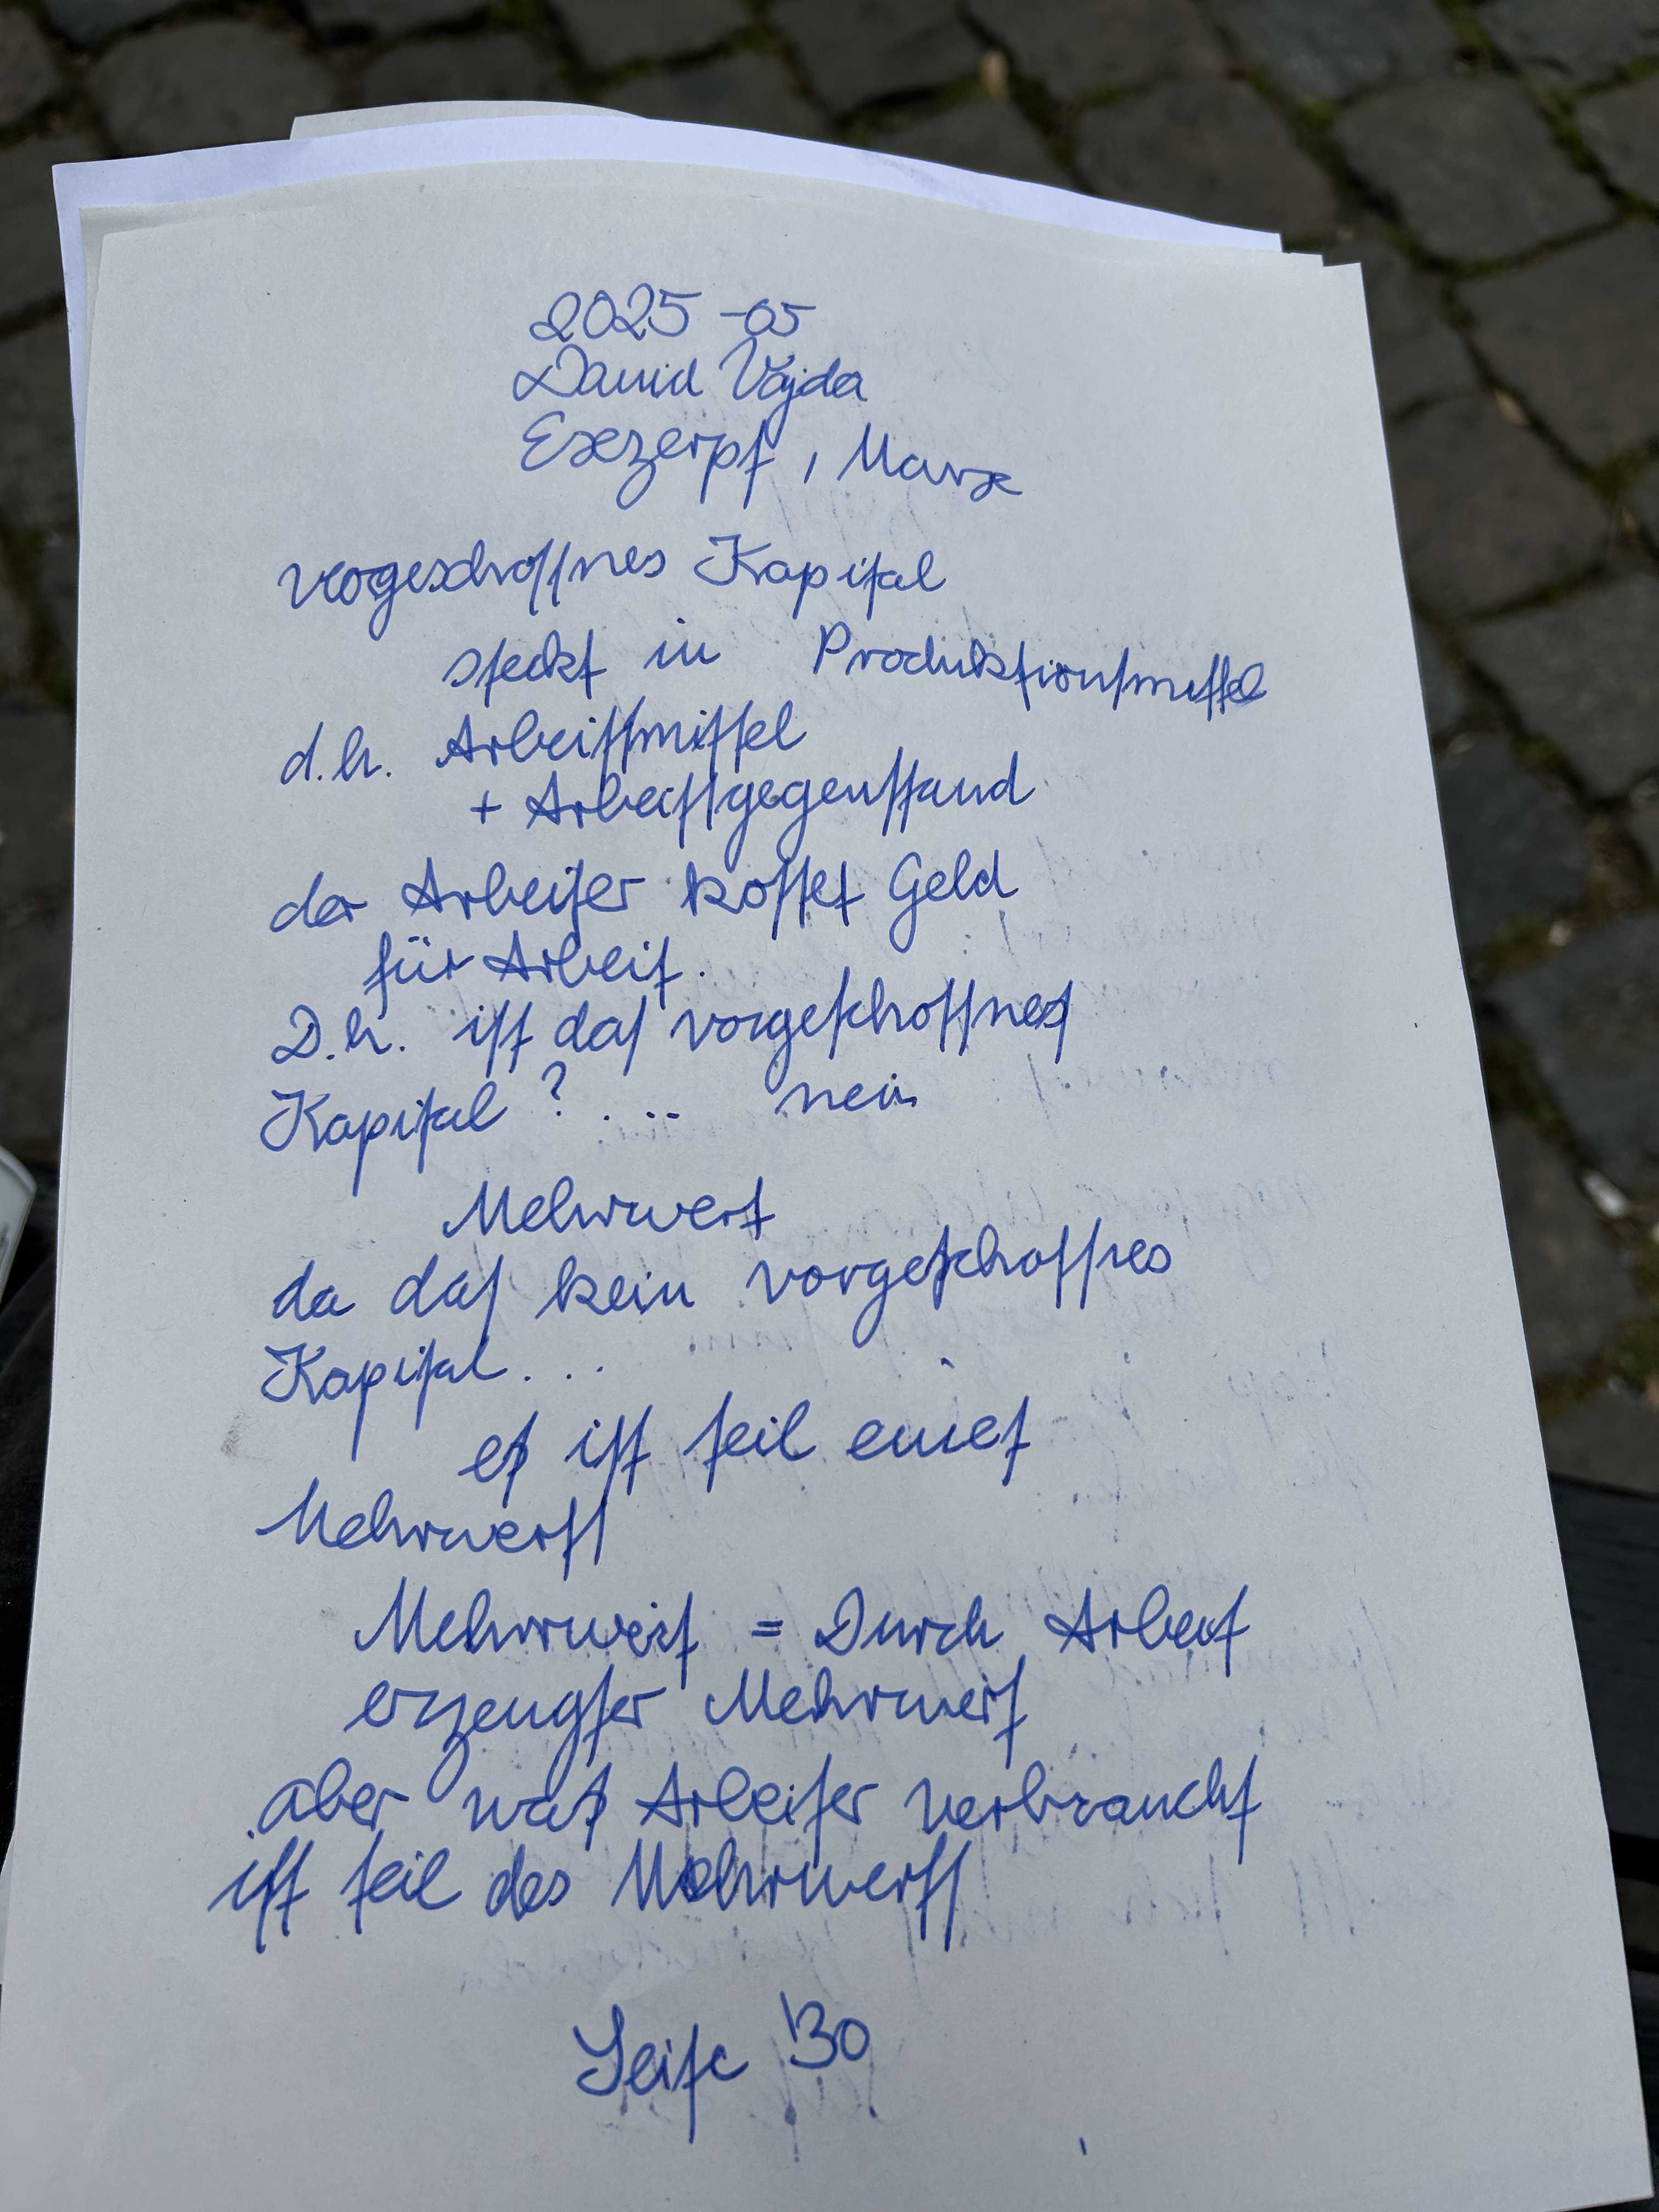 2025-05
David Vajda
Exzerpt, Marx
vorgeschossnes Kapital
steckt in Produktionsmittel
d.h. Arbeitsmittel
+ Arbeitsgegenstand
der Arbeiter kostet Geld
für Arbeit.
D.h. ist das vorgeschossnes
Kapital? ... nein
Mehrwert
da das kein vorgeschossnes
Kapital...
es ist teil eines
Mehrwerts
Mehrwert = Durch Arbeit
erzeugter Mehrwert
aber was Arbeiter verbraucht
ist teil des Mehrwerts
Seite 130